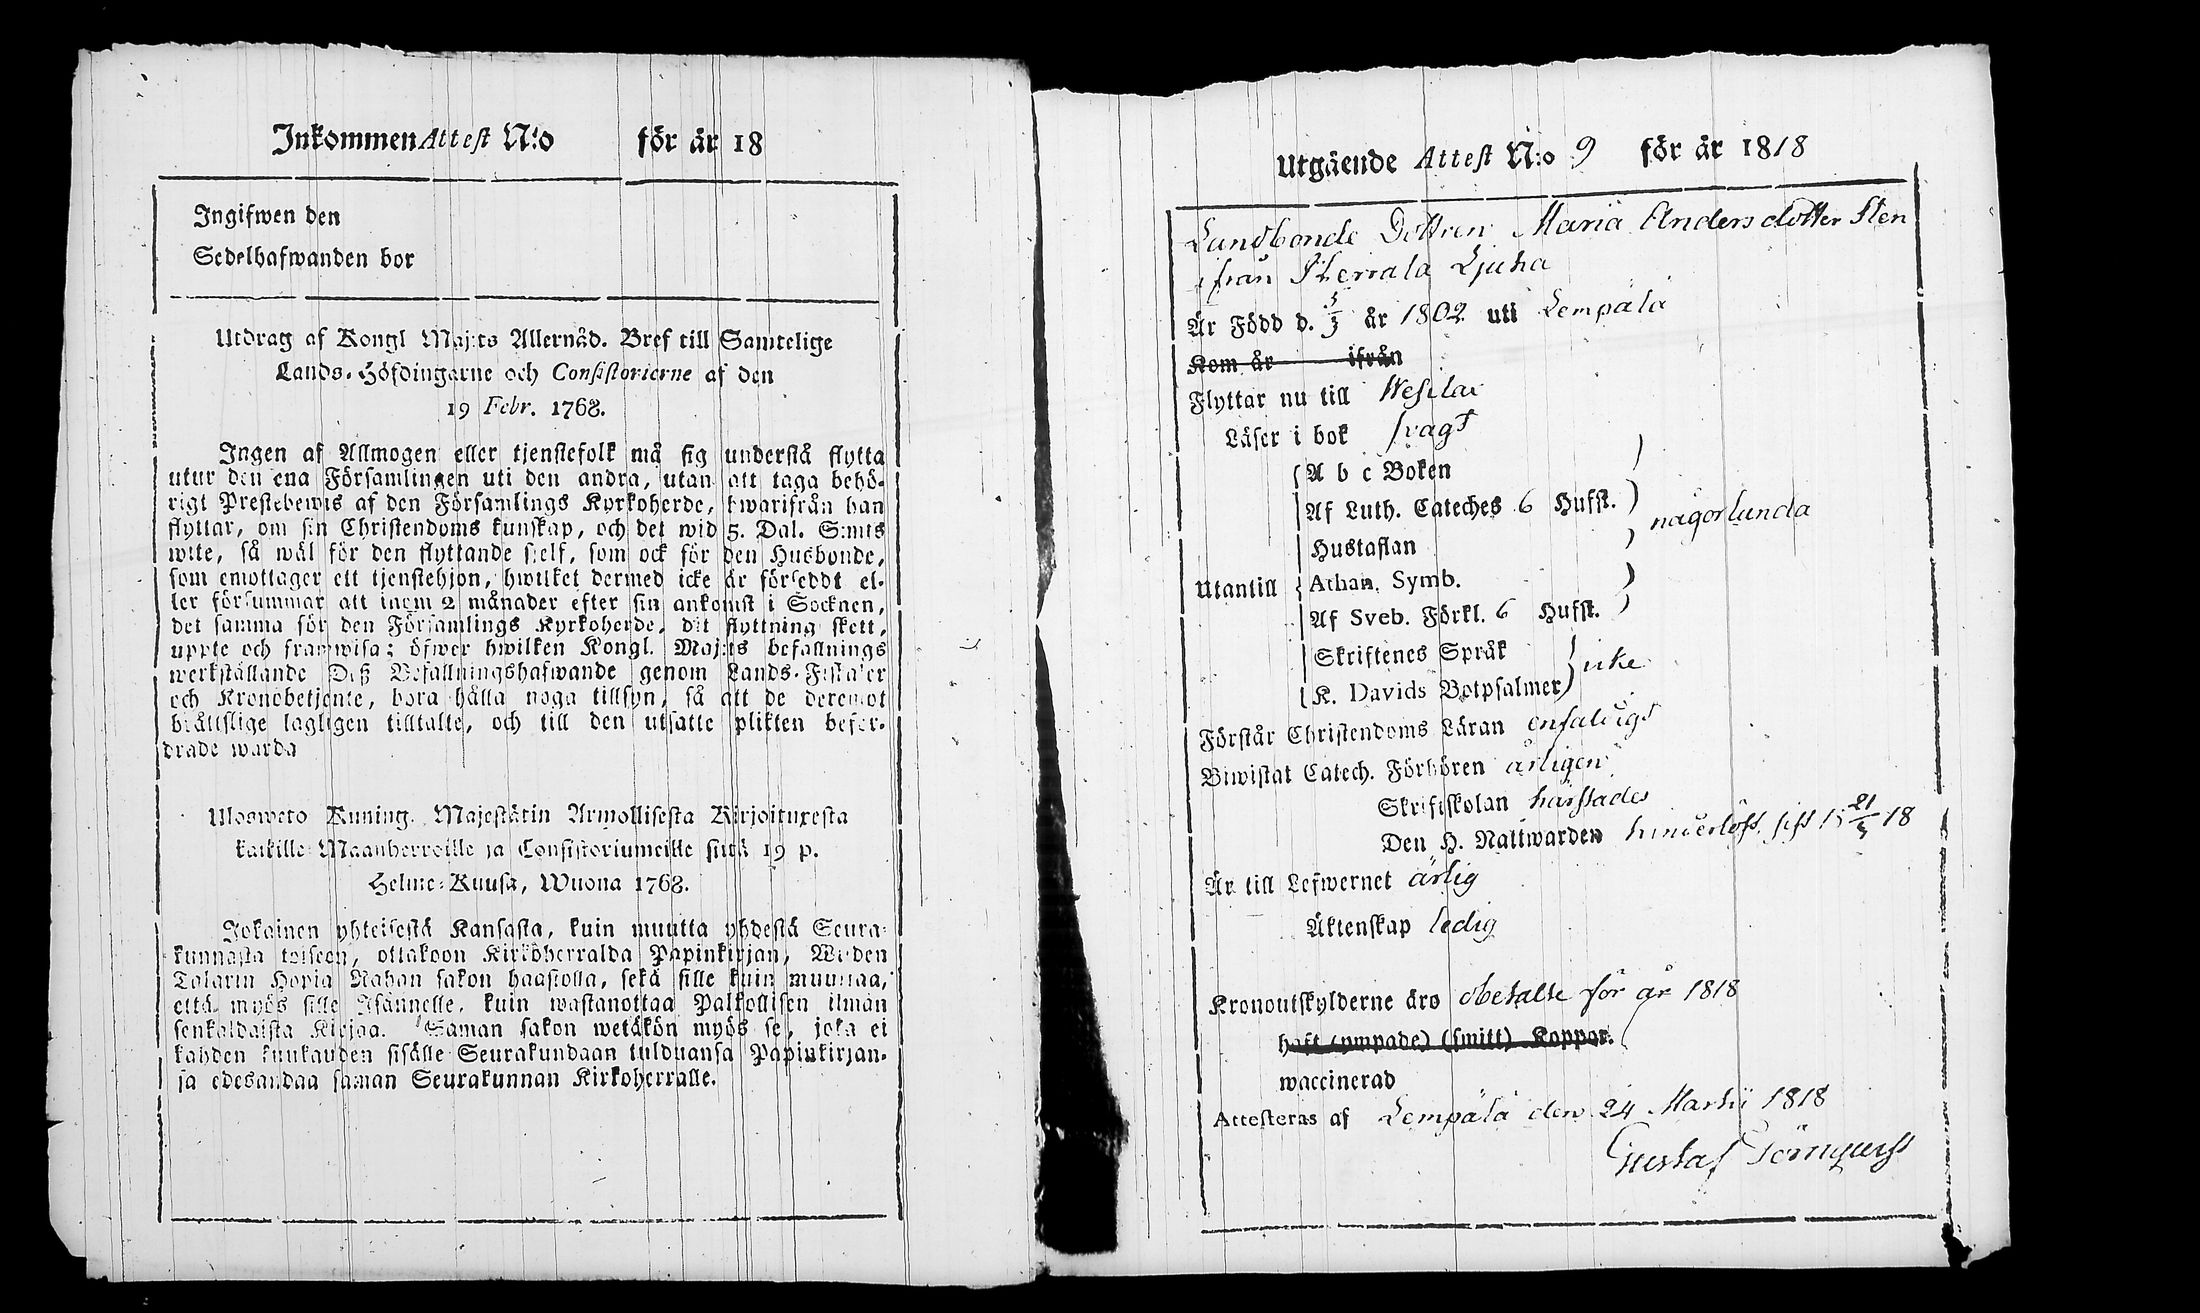 Inkommen Attest N:o för år 18
Ingifwen den
Sedelhafwanden bor
Utdrag af Kongl Maj:ts Allernåd. Bref till Samtelige
Lands-Höfdingarne och Consistorierne af den
19 Febr. 1768.
Ingen af Allmogen eller tjenstefolk må sig understå flytta
utur den ena Församlingen uti den andra, utan att taga behö-
rigt Prestebewis af den Församlings Kyrkoherde, hwarifrån han
flyttar, om sin Christendoms kunskap, och det wid 5. Dal. S:mts
wite, så wäl för den flyttande sjelf, som ock för den Husbonde,
som emottager ett tjenstehjon, hwilket dermed icke är förseddt el-
ler försummar att inom 2 månader efter sin ankomst i Socknen,
det samma för den Församlings Kyrkoherde, dit flyttning skett,
uppte och framwisa; öfwer hwilken Kongl. Maj:ts befallnings
werkställande Deß Befallningshafwande genom Lands-Fiskaler
och Kronobetjente, böra hålla noga tillsyn, så att de deremot
bråttslige lagligen tilltalte, och till den utsatte plikten befor-
drade warda
Uloosweto Kuning. Majestätin Armollisesta Kirjoituxesta
kaikille Maanherroille ja Consistoriumeille siitä 19 p.
Helme-Kuusa, Wuona 1768.
Jokainen yhteisestä Kansasta, kuin muutta yhdestä Seura-
kunnasta toiseen, ottakoon Kirkoherralda Papinkirjan, Wiiden
Talarin Hopia Rahan sakon haastolla, sekä sille kuin muuttaa,
että myös sille Isännelle, kuin wastanottaa Palkollisen ilman
senkaldaista Kirjaa. Saman sakon wetäkön myös se, joka ei
kahden kuukauden sisälle Seurakundaan tulduansa Papinkirjan-
sa edesandaa saman Seurakunnan Kirkoherralle.
Utgående Attest N:o 9 för år 1818
Landbonde Dottren Maria Andersdotter Sten
ifrån Herrala Ljuha
Är Född d. 5/3 år 1802 uti Lempälä
Kom år ifrån
Flyttar nu till Wesilax
Läser i bok svagt
A b c Boken
Af Luth. Cateches 6 Hufst.
någorlunda
Hustaflan
Utantill Athan. Symb.
Af Sveb. Förkl. 6 Hufst.
Skriftenes Språk
icke
K. Davids Botpsalmer
Förstår Christendoms Läran enfaldigt
Biwistat Catech. Förhören årligen
Skriftskolan härstädes
Den H. Nattwarden hinderlöst, sist 21/3 18
Är till Lefwernet ärlig
Äktenskap ledig
Kronoutskylderne äro obetalte för år 1818
haft (ympade) (smitt) Koppor.
waccinerad
Attesteras af Lempälä den 24 Martii 1818
Gustaf Törnquist